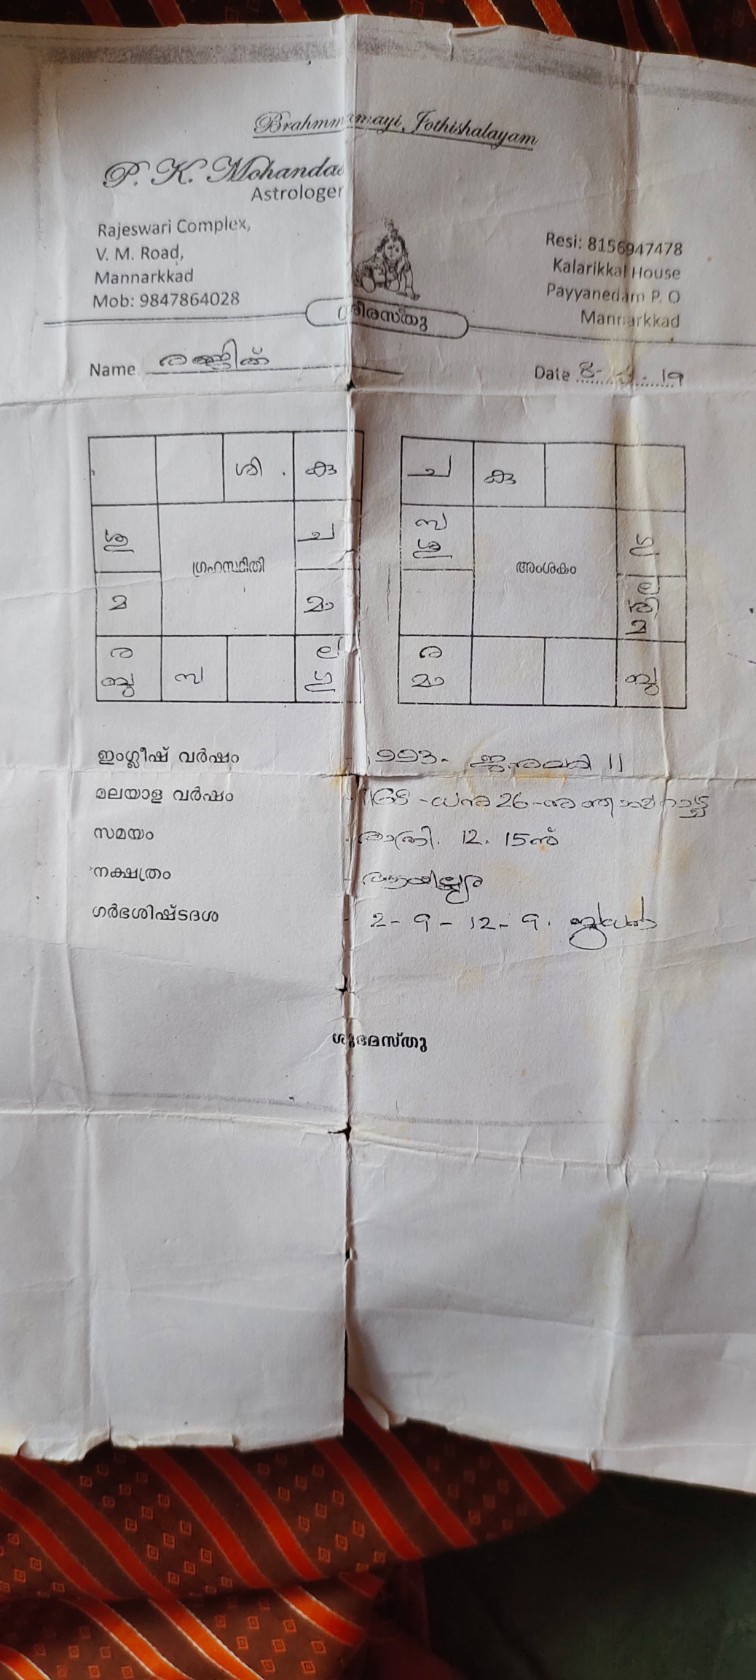 Brahmmamayi, Jothishalayam
P. K. Mohandas
Astrologer
Rajeswari Complex,
V. M. Road,
Mannarkkad
Mob: 9847864028
Resi: 8156947478
Kalarikkal House
Payyanedam P. O
Mannarkkad
ശ്രീരസ്തു
Name
Date 19
ശി കു
ശു ച
ഗ്രഹസ്ഥിതി
മ മാ
ര ബു സ ല ഗു
ച കു
സ ശു ഗു
അംശകം
ല ശി മ
ര മാ ബു
ഇംഗ്ലീഷ് വർഷം - 1993- ജനുവരി 11
മലയാള വർഷം - ധനു 26
സമയം - രാത്രി. 12. 15ന്
നക്ഷത്രം - ആയില്ല്യം
ഗർഭശിഷ്ടദശ - 2 - 9 - 12 - 9.
ശുഭമസ്തു